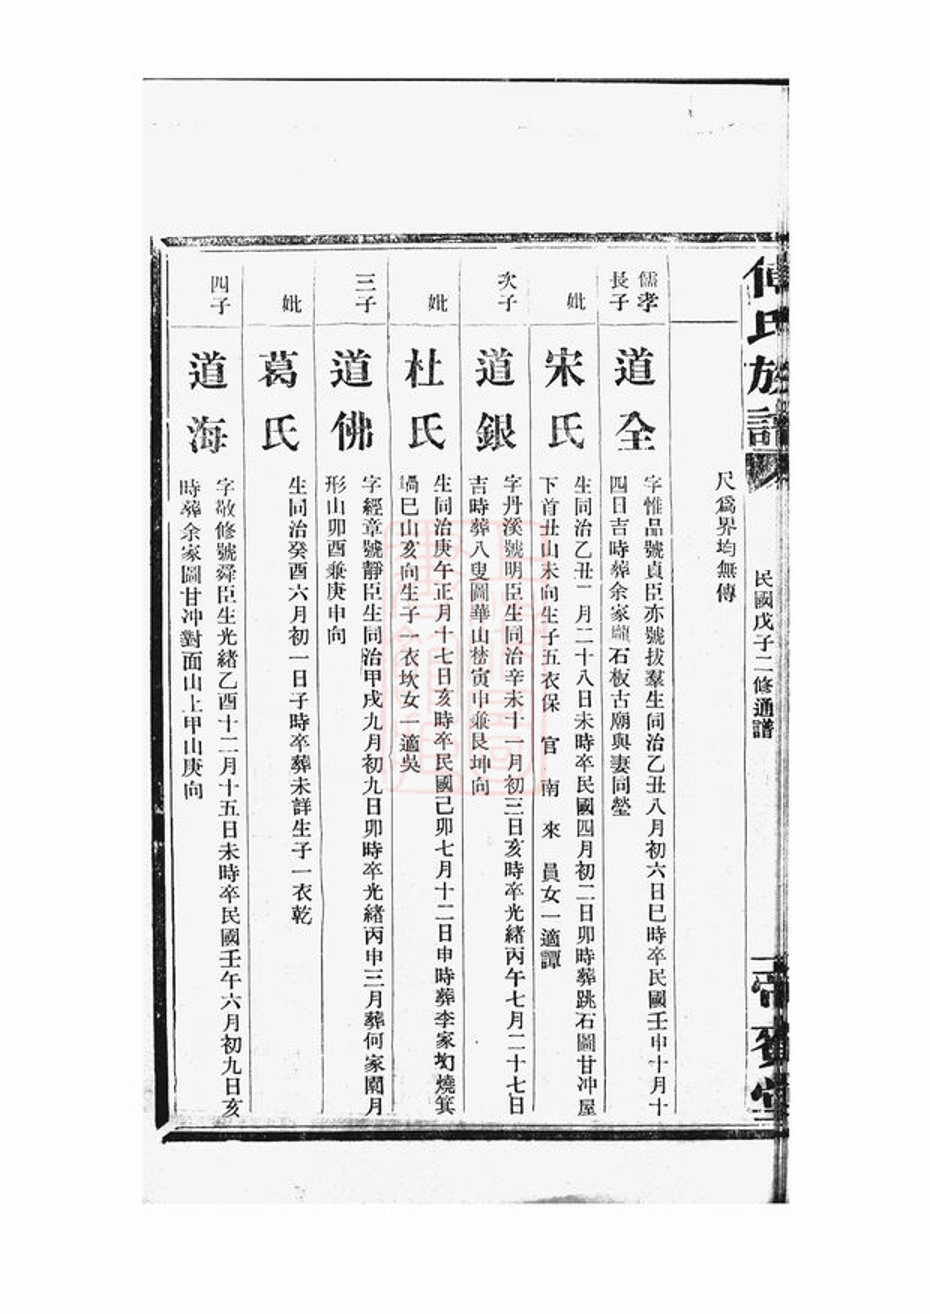 傅氏族譜
民國戊子二修通譜
帝賚堂
尺爲界均無傳
儒孝
長子
道全
字惟品號貞臣亦號拔羣生同治乙丑八月初六日巳時卒民國壬申十月十
四日吉時葬余家隴石板古廟與妻同塋
妣
宋氏
生同治乙丑二月二十八日未時卒民國四月初二日卯時葬跳石圖甘冲屋
下首丑山未向生子五衣保 官 南 來 員女一適譚
次子
道銀
字丹溪號明臣生同治辛未十一月初三日亥時卒光緒丙午七月二十七日
吉時葬八叟圖華山嵾寅申兼艮坤向
妣
杜氏
生同治庚午正月十七日亥時卒民國己卯七月十二日申時葬李家㘭燒箕
堝巳山亥向生子一衣坎女一適吳
三子
道佛
字經章號靜臣生同治甲戌九月初九日卯時卒光緒丙申三月葬何家園月
形山卯酉兼庚申向
妣
葛氏
生同治癸酉六月初一日子時卒葬未詳生子一衣乾
四子
道海
字敬修號舜臣生光緒乙酉十二月十五日未時卒民國壬午六月初九日亥
時葬余家圖甘冲對面山上甲山庚向